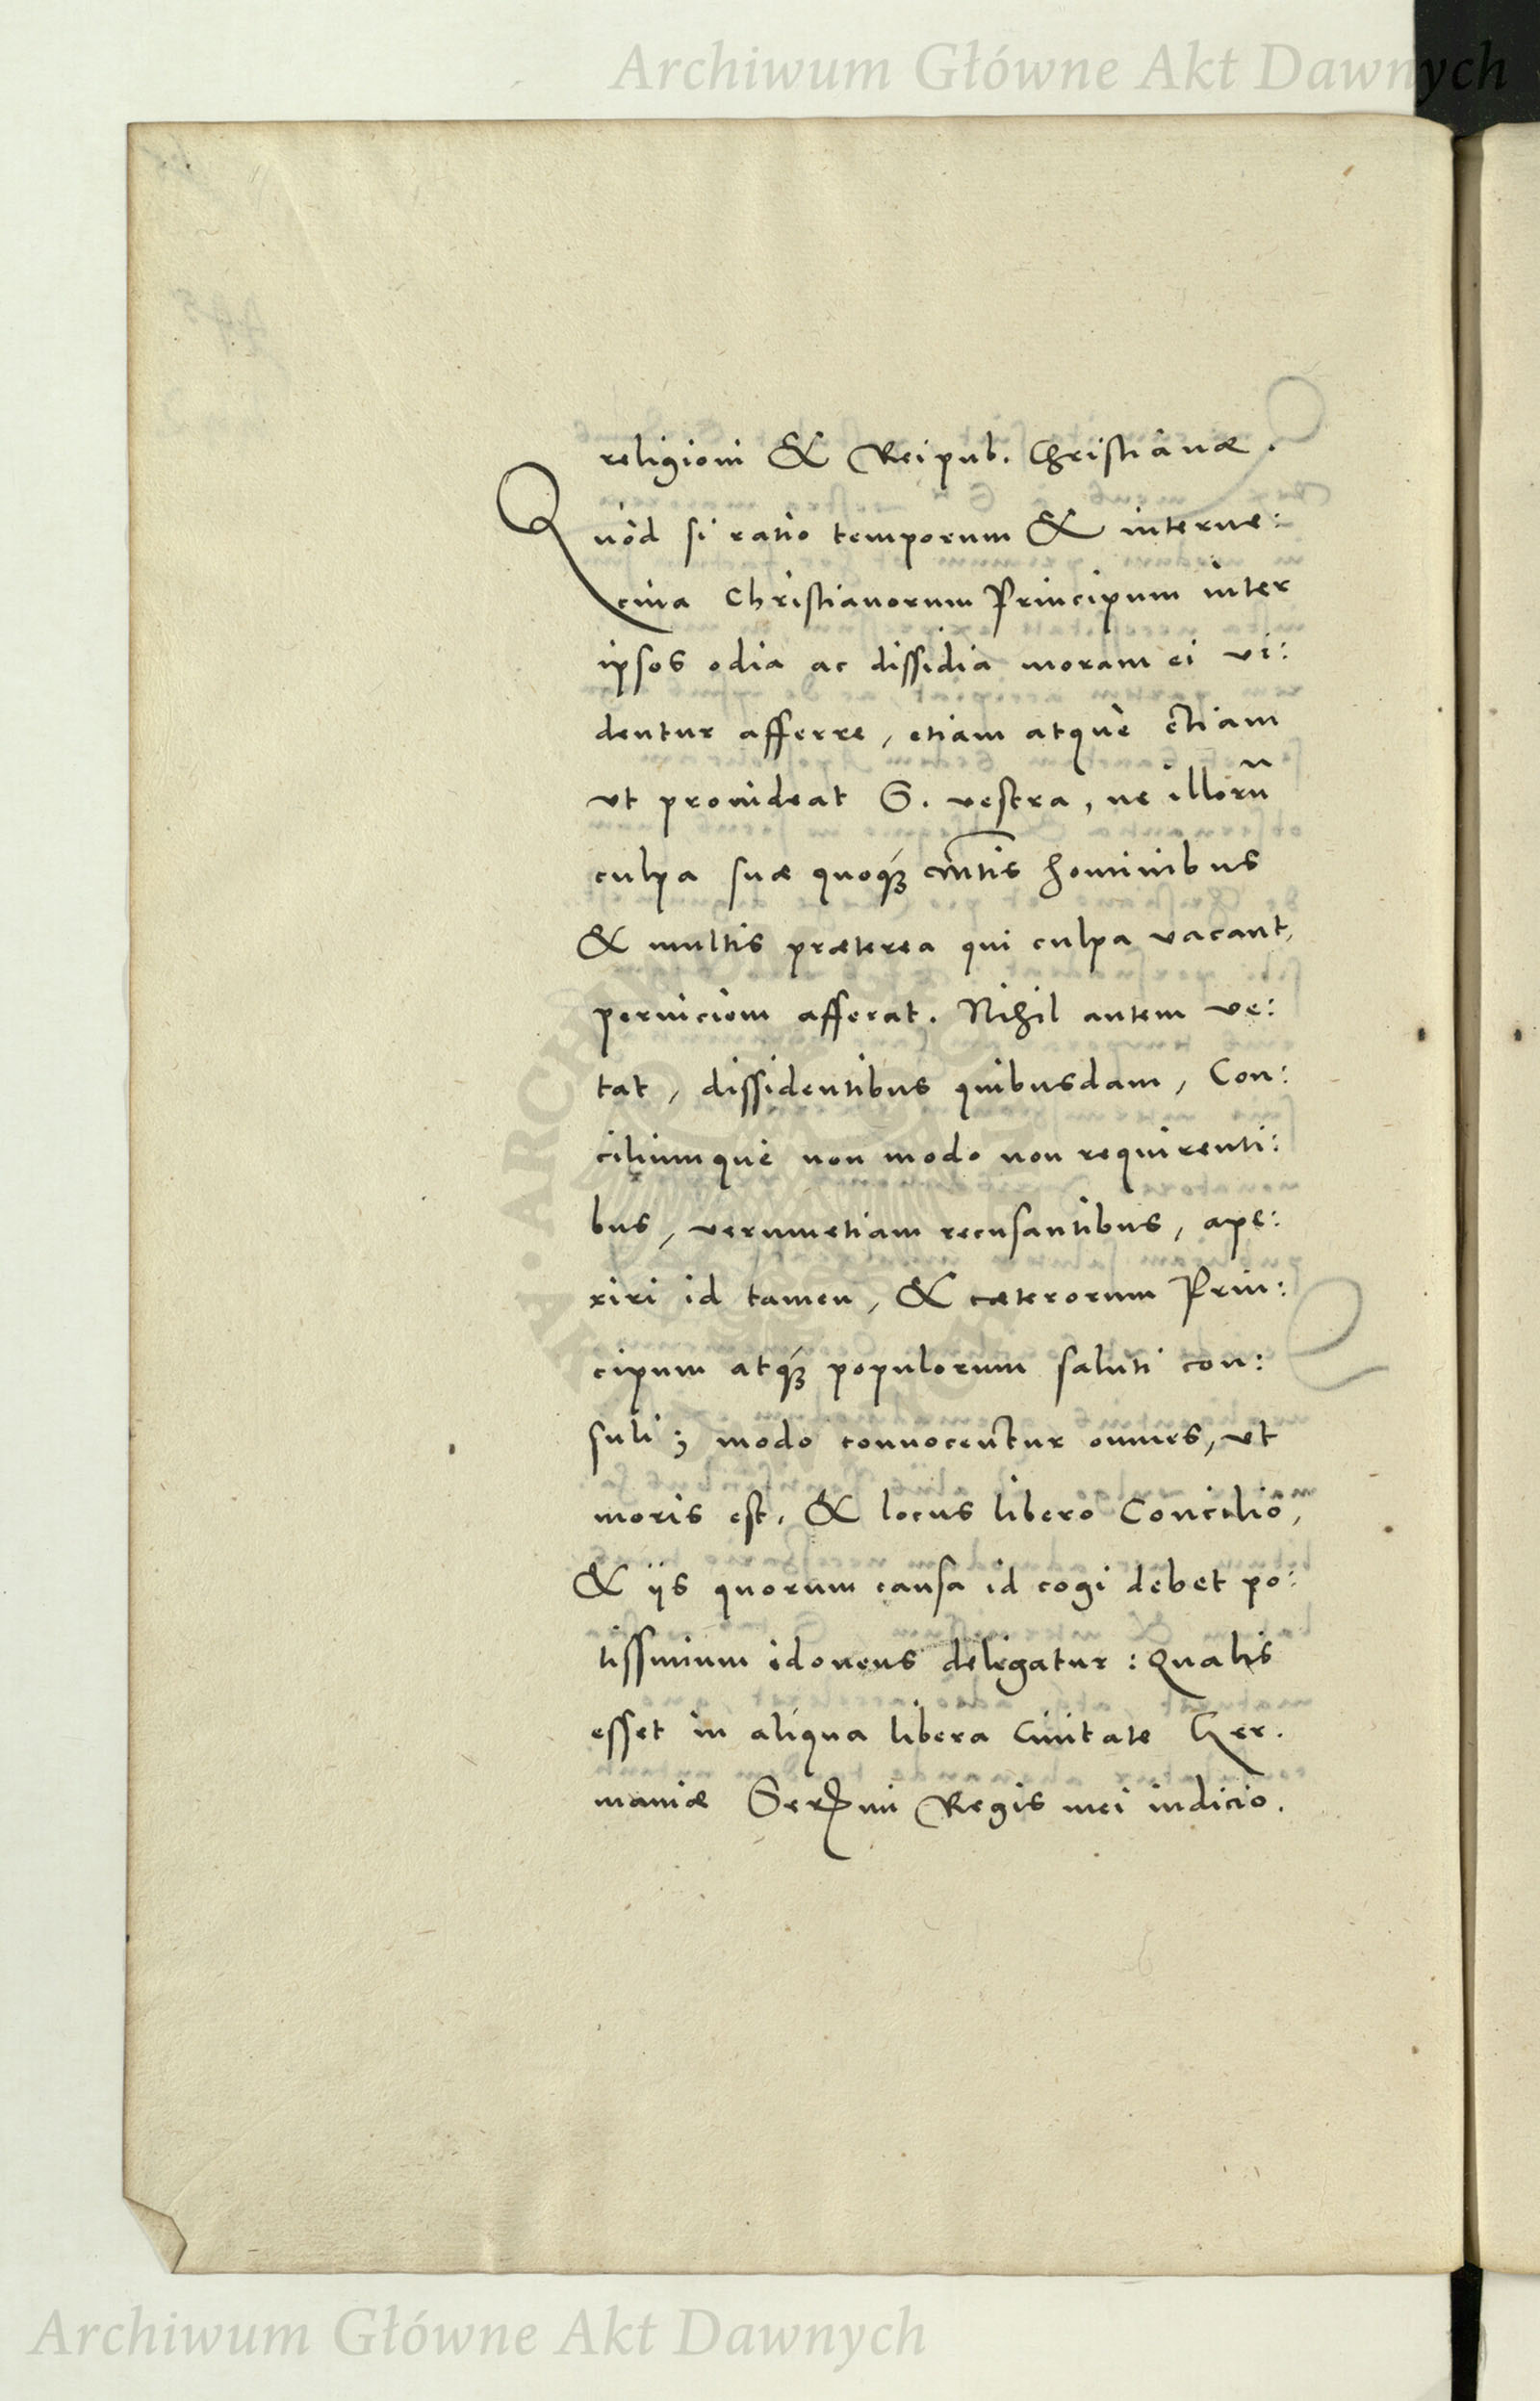 Archiwum Główne Akt Dawnych
religioni & Reipub. Christianæ.
Quòd si ratio temporum & interne:
cina Christianorum Principum inter
ipsos odia ac dissidia moram ei vi:
dentur afferre, etiam atque etiam
vt prouideat S. vestra, ne illorũ
culpa suæ quoqȝ mẽtis hominibus
& multis præterea qui culpa vacant,
perniciem afferat. Nihil autem ve:
tat, dissidentibus quibusdam, Con:
ciliumque non modo non requirenti:
bus, verumetiam recusantibus, ape:
riri id tamen, & cæterorum Prin:
cipum atqȝ populorum saluti con:
suli; modo conuocentur omnes, vt
moris est, & locus libero Concilio,
& ijs quorum causa id cogi debet po:
tissimum idoneus deligatur: Qualis
esset in aliqua libera Ciuitate Ger.
maniæ Serᵐⁱ Regis mei iudicio.
Archiwum Główne Akt Dawnych